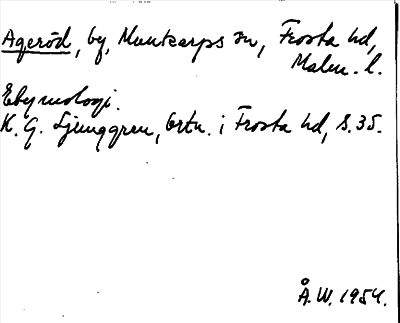 Ageröd, by, Munkarps sn, Frosta hd,
Malm. l.
Etymologi.
K. G. Ljunggren, Ortn. i Frosta hd, s. 35.
Å. W. 1954.